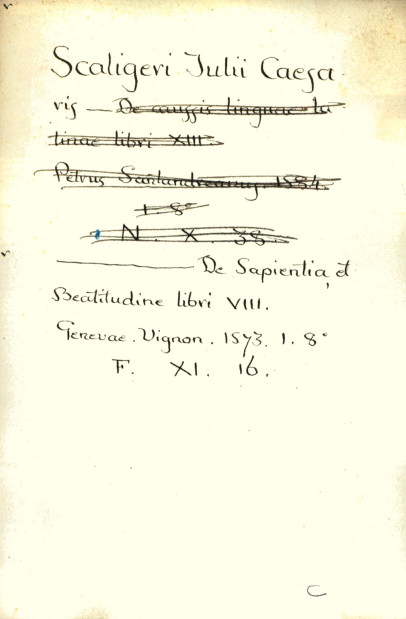 Scaligeri Julii Caesa
ris — De caussis linguae la
tinae libri XIII.
Petrus Santandreanus 1584.
1. 8°
N. X. 38.
De Sapientia, et
Beatitudine libri VIII.
Genevae. Vignon. 1573. 1. 8°
F. XI. 16.
C